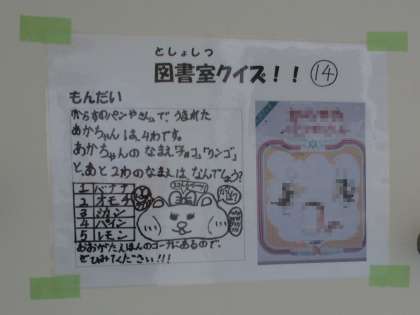 としょしつ
図書室クイズ!! ⑭
もんだい
からすのパンやさんで うまれた
あかちゃんは、4わです。
あかちゃんの なまえ
「リンゴ」
と、あと2わのなまえは なんでしょう?
1 バナナ
2 オモチ
3
4 パイン
5 レモン
おおがたえほんのコーナーにあるので、
ぜひみてください!!!